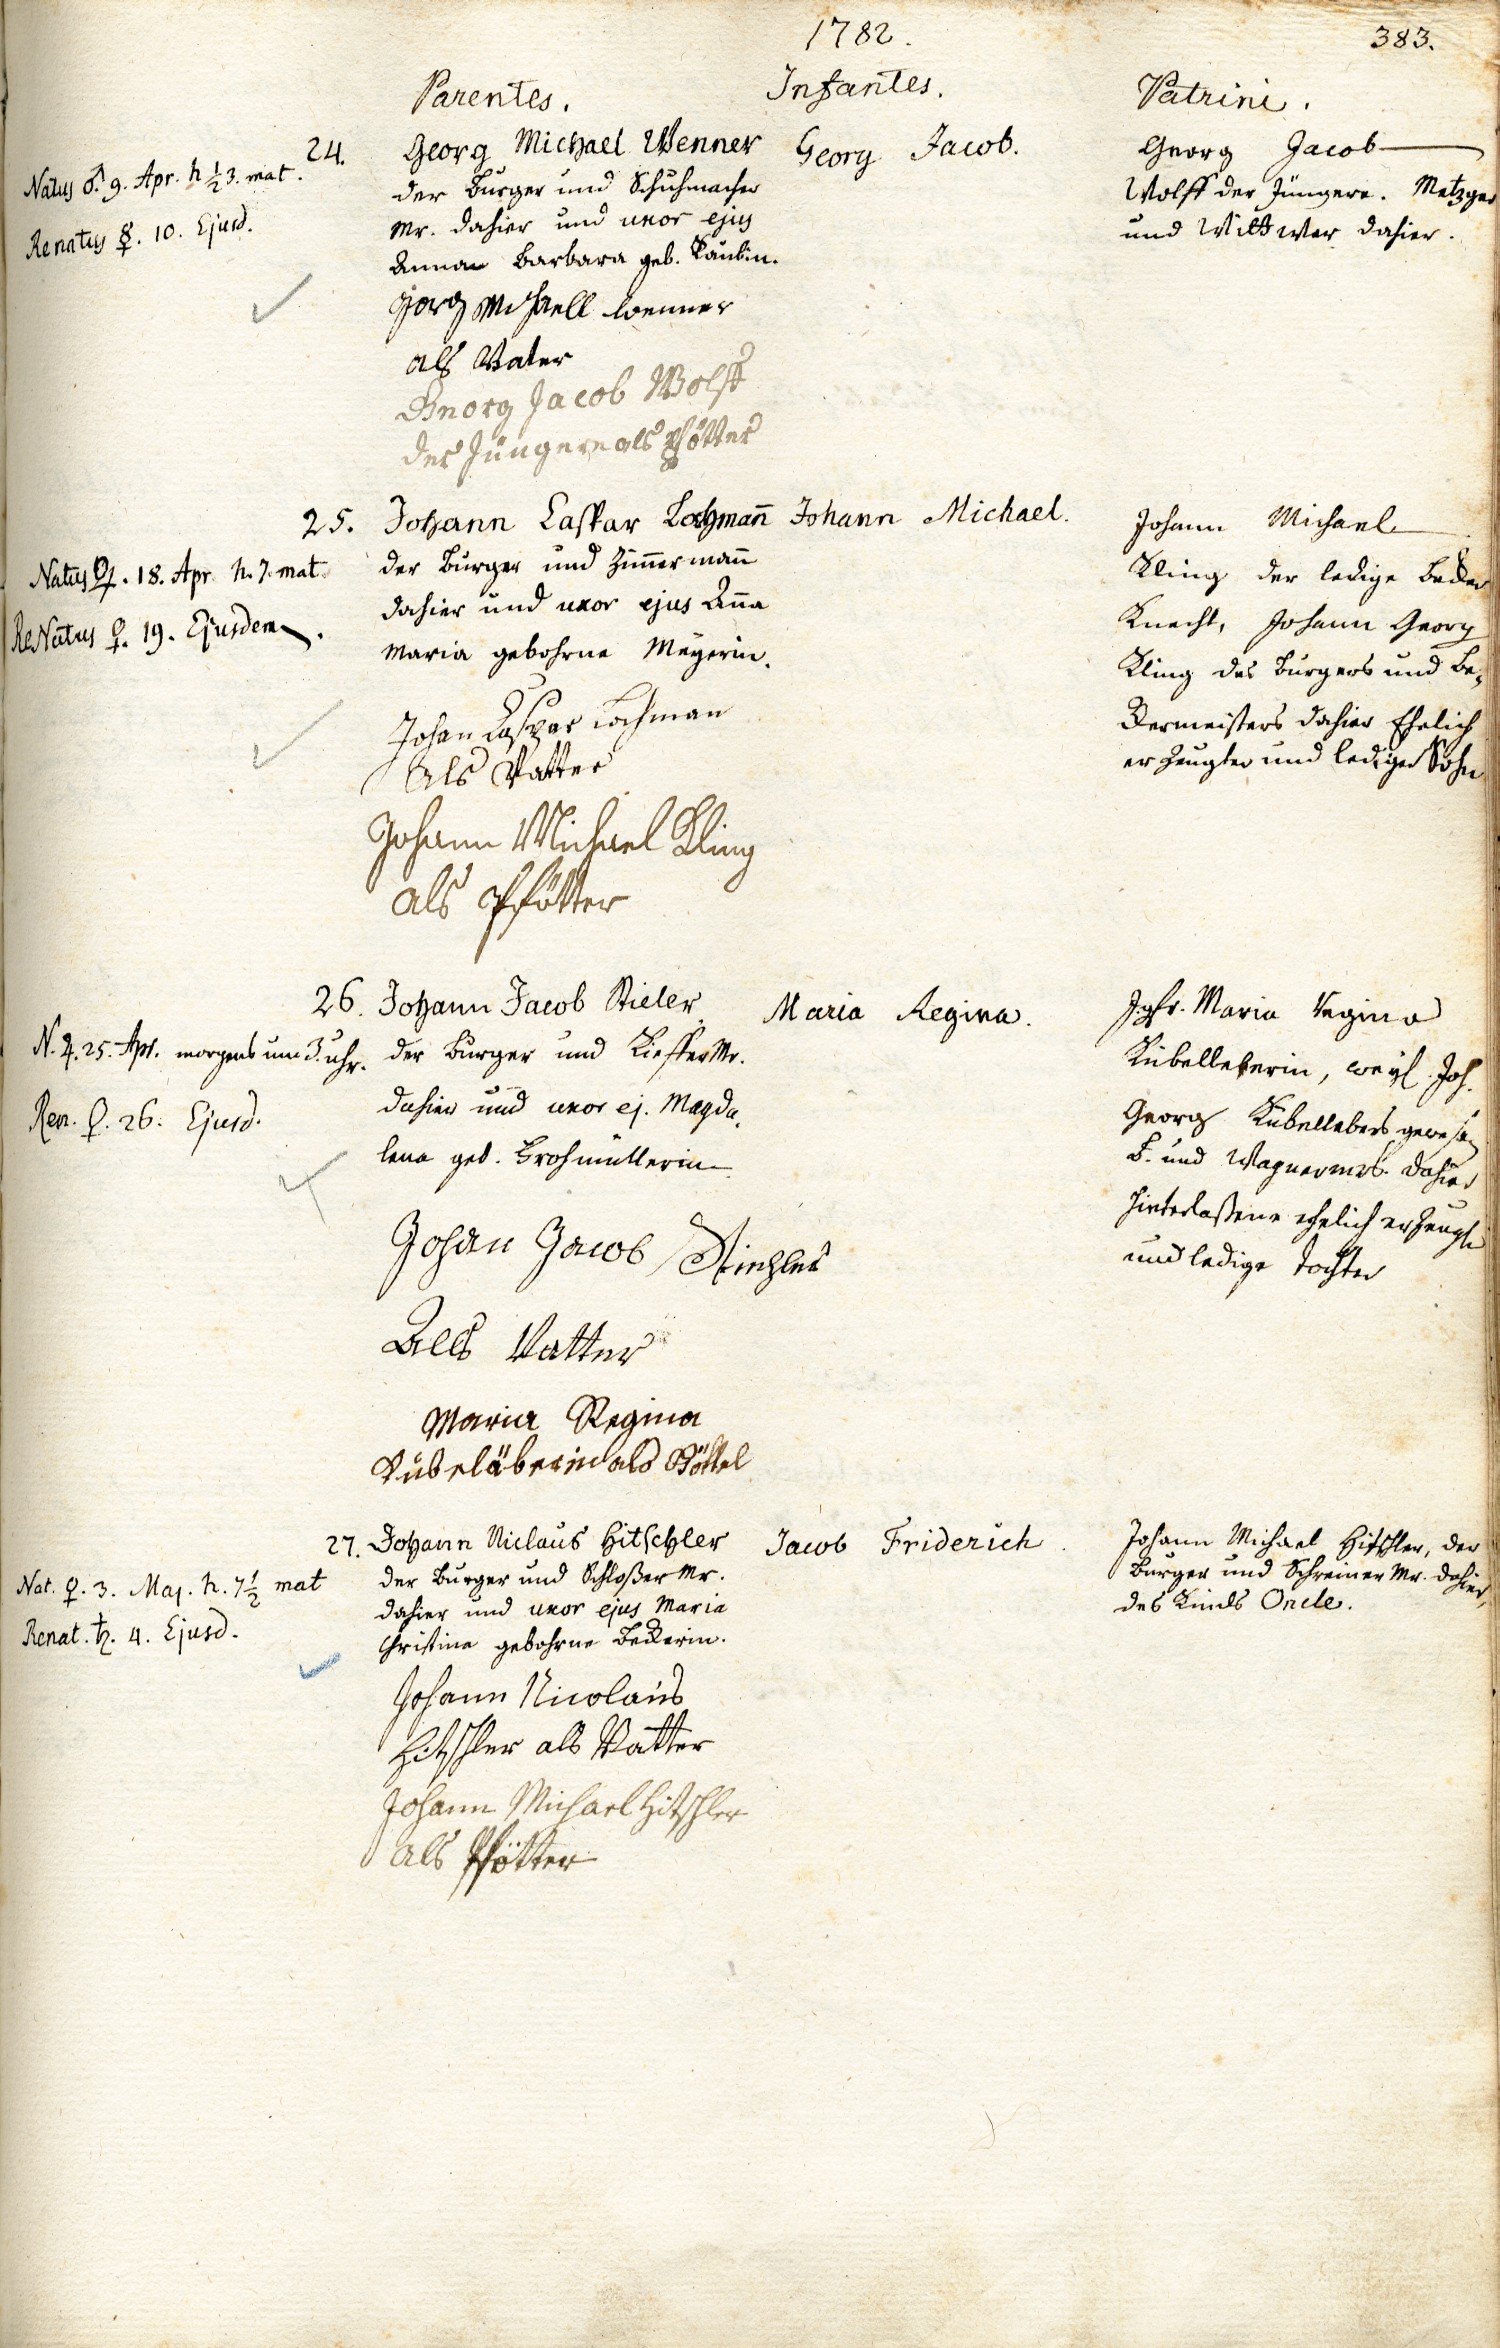 1782.
383.
Parentes.
Infantes.
Patrini.
24.
Natus ♂. 9. Apr. h ½3. mat.
Renatus ☿. 10. Ejusd.
Georg Michael Wenner
der Burger und Schuhmacher
Mr. dahier und uxor ejus
Anna Barbara geb.
Gjorg Michaell Wenner
als Vater
Georg Jacob Wolff
der Jüngere als Pfötter
Georg Jacob.
Georg Jacob
Wolff der Jüngere. Metzger
und Wittwer dahier.
25.
Natus ♃. 18. Apr. h. 7. mat.
ReNatus ♀. 19. Ejusdem.
Johann Caspar Lochmañ
der Burger und Zim̄ermañ
dahier und uxor ejus Añna
Maria gebohrne Meyerin.
Johan Caspar Lochman
als Vatter
Johann Michael Kling
als Pfötter
Johann Michael.
Johann Michael
Kling der ledige Becker
Knecht, Johann Georg
Kling des Burgers und Be-
ckermeisters dahier Ehelich
erzeugter und lediger Sohn
26.
N. ♃. 25. Apr. morgens um 3. uhr.
Ren. ♀. 26. Ejusd.
Johann Jacob Stieler
der Burger und Kieffer Mr.
dahier und uxor ej. Magda-
lena geb. Brohmüllerin
Johan Jacob Stiehler
Als Vatter
Maria Regina
Kübeläberin als Pföttel
Maria Regina.
Jgfr. Maria Regina
Kübelleberin, weyl. Joh.
Georg Kübellebers gewesen
B. und Wagnermrs. dahier
hinterlaßene ehelich erzeugte
und ledige Tochter
27.
Nat. ♀. 3. Maj. h. 7½ mat
Renat. ♄. 4. Ejusd.
Johann Niclaus Hitschler
der Burger und Schloßer Mr.
dahier und uxor ejus Maria
Christina gebohrne Beckerin.
Johann Nicolaus
Hitschler als Vatter
Johann Michael Hitschler
als Pfötter
Jacob Friderich.
Johann Michael Hitschler, der
Burger und Schreiner Mr. dahier,
des Kinds Oncle.